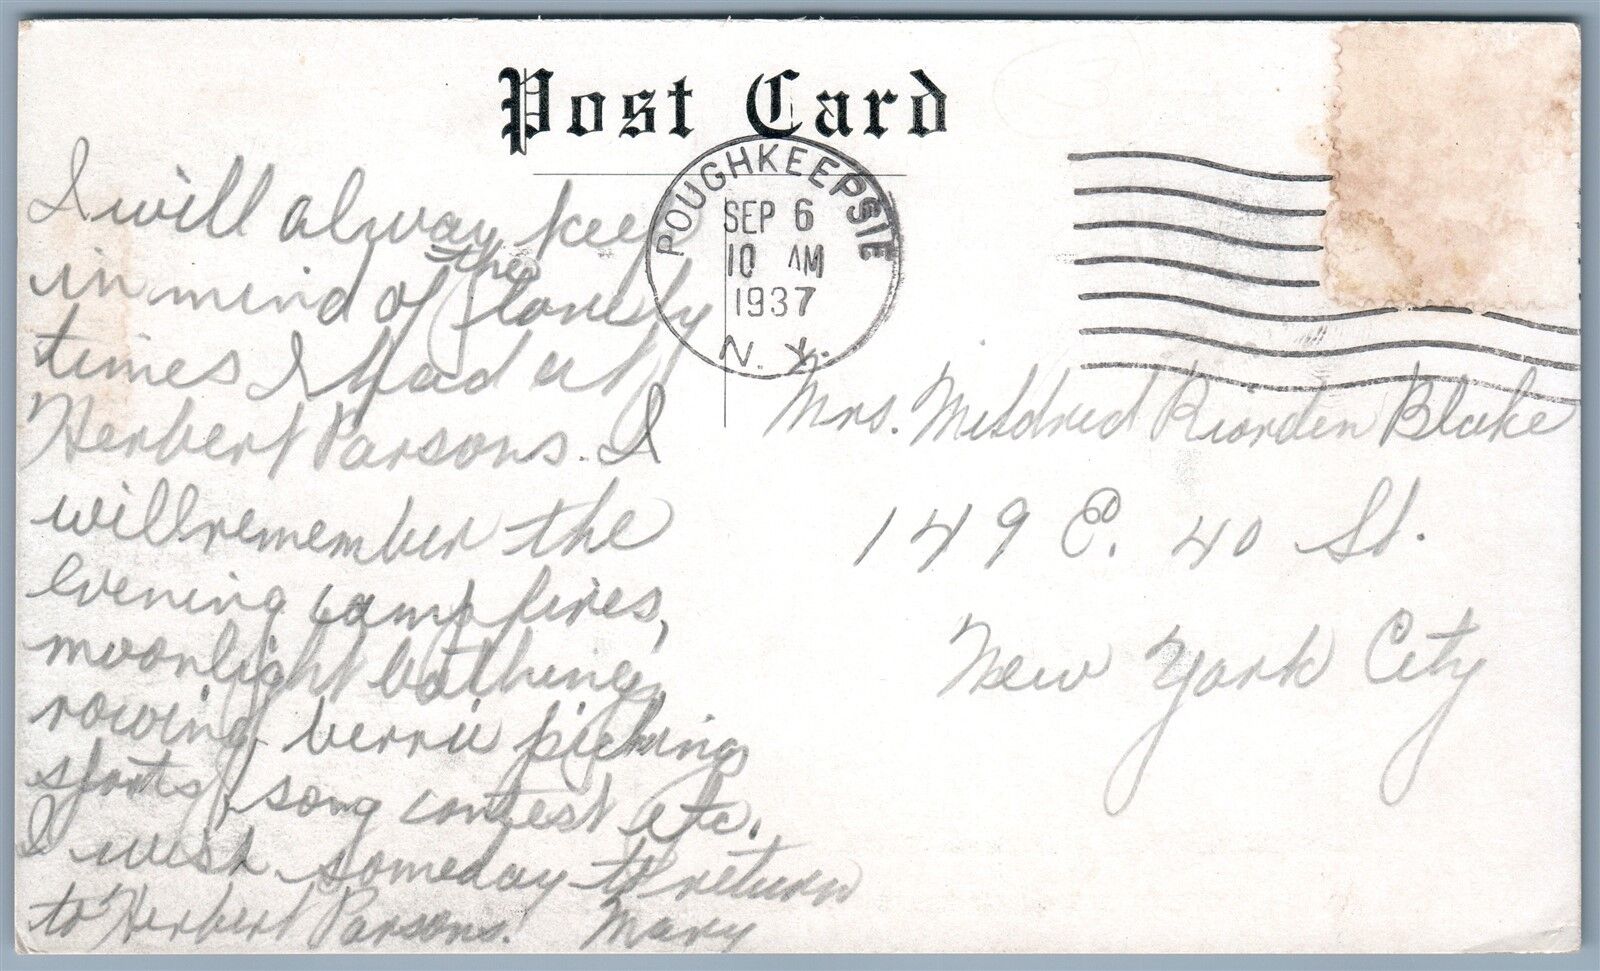 Post Card
POUGHKEEPSIE
SEP 6
10 AM
1937
N. Y.
I will alway keep
in mind of the lovely
times I had at
Herbert Parsons. I
will remember the
evening camp fires,
moonlight bathing,
rowing, berrie picking
sports, song contest etc.
I wish someday to return
to Herbert Parsons. Mary
Mrs. Mildred Riorden Blake
149 E. 40 St.
New York City